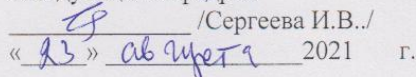 /Сергеева И.В../
«23» августа 2021 г.